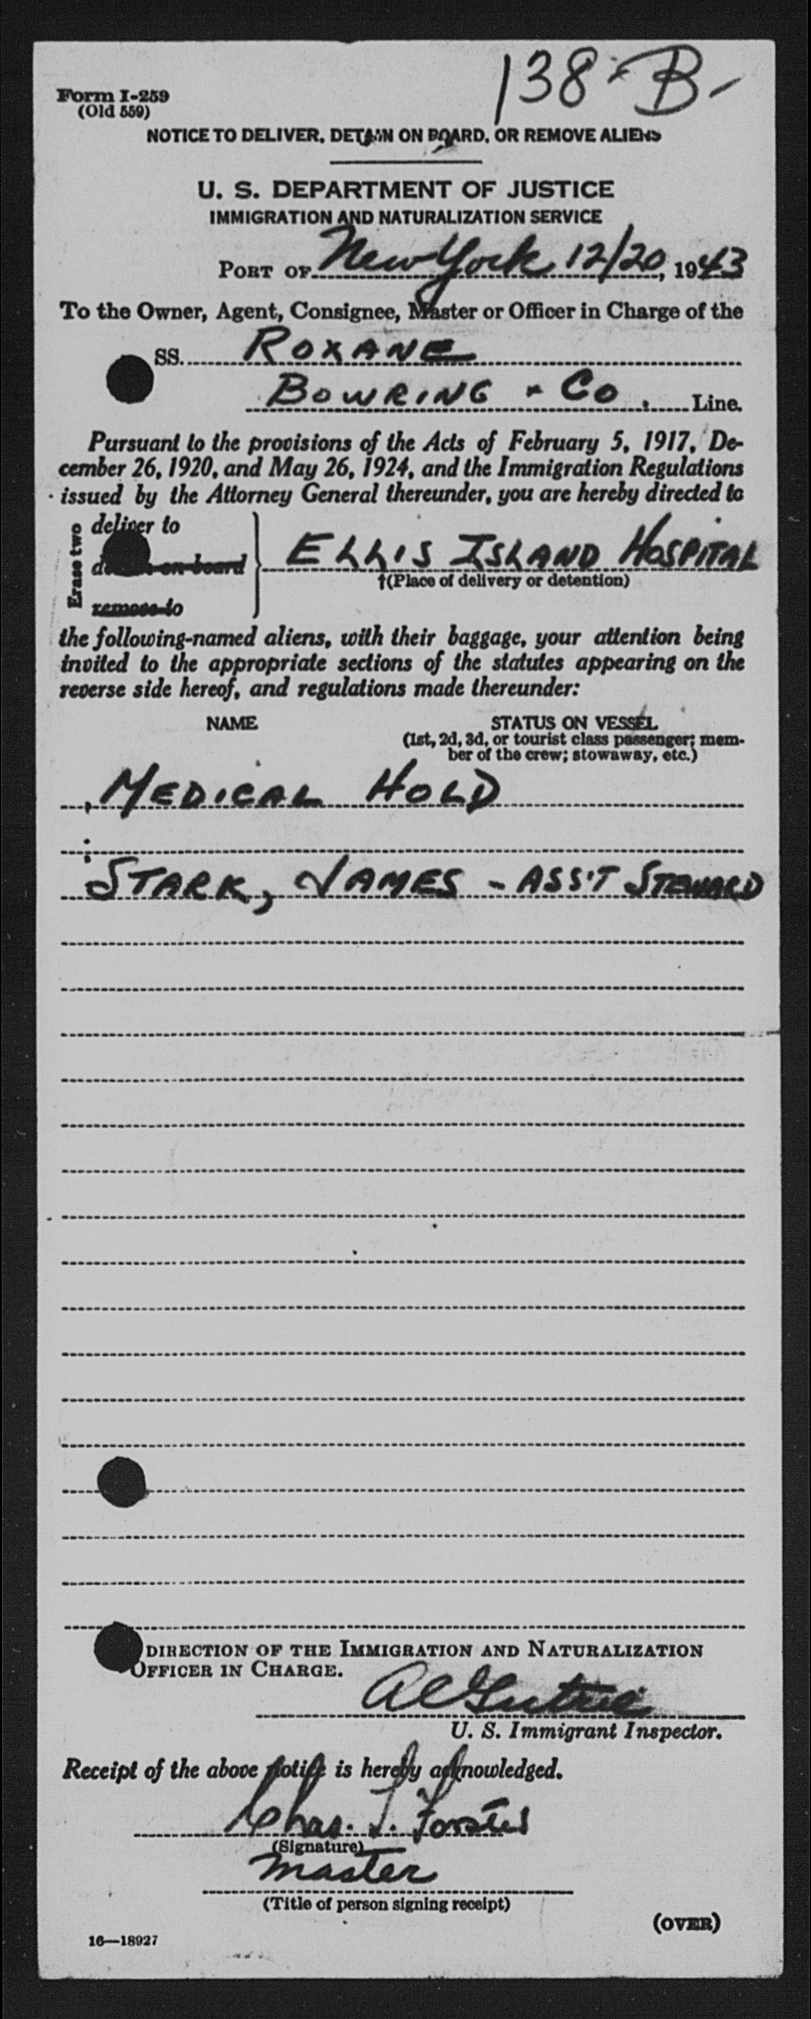 138-B-
Form I-259
(Old 559)
NOTICE TO DELIVER, DETAIN ON BOARD, OR REMOVE ALIENS
U. S. DEPARTMENT OF JUSTICE
IMMIGRATION AND NATURALIZATION SERVICE
PORT OF New York 12/20, 1943
To the Owner, Agent, Consignee, Master or Officer in Charge of the
SS. ROXANE
BOWRING & CO. Line.
Pursuant to the provisions of the Acts of February 5, 1917, De-
cember 26, 1920, and May 26, 1924, and the Immigration Regulations
issued by the Attorney General thereunder, you are hereby directed to
Erase two
deliver to
on board ELLIS ISLAND HOSPITAL
†(Place of delivery or detention)
remove to
the following-named aliens, with their baggage, your attention being
invited to the appropriate sections of the statutes appearing on the
reverse side hereof, and regulations made thereunder:
NAME STATUS ON VESSEL
(1st, 2d, 3d, or tourist class passenger; mem-
ber of the crew; stowaway, etc.)
MEDICAL HOLD
STARK, JAMES - ASS'T STEWARD
DIRECTION OF THE IMMIGRATION AND NATURALIZATION
OFFICER IN CHARGE.
U. S. Immigrant Inspector.
Receipt of the above notice is hereby acknowledged.
Chas. T. Forster
(Signature)
Master
(Title of person signing receipt)
(OVER)
16—18927